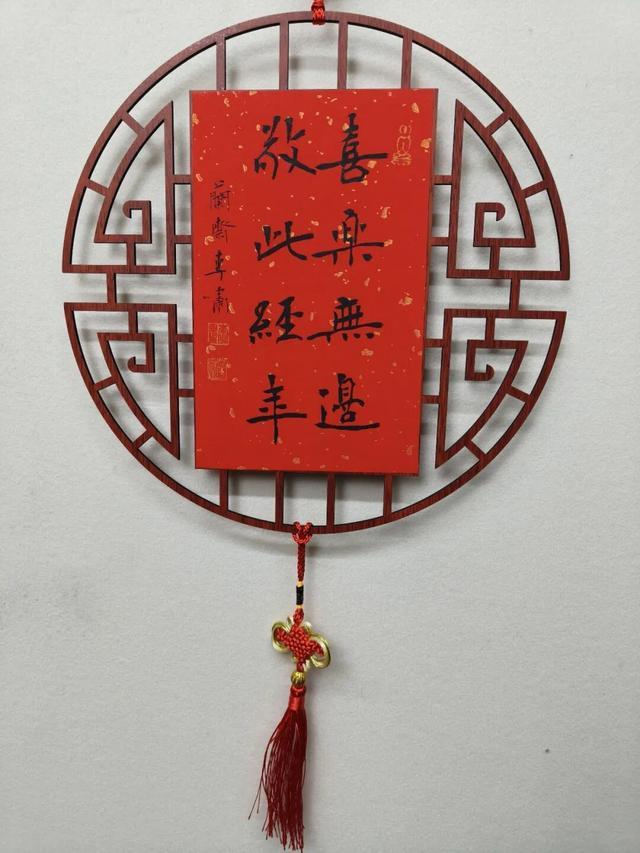 喜樂無邊
敬此經年
蘭齋